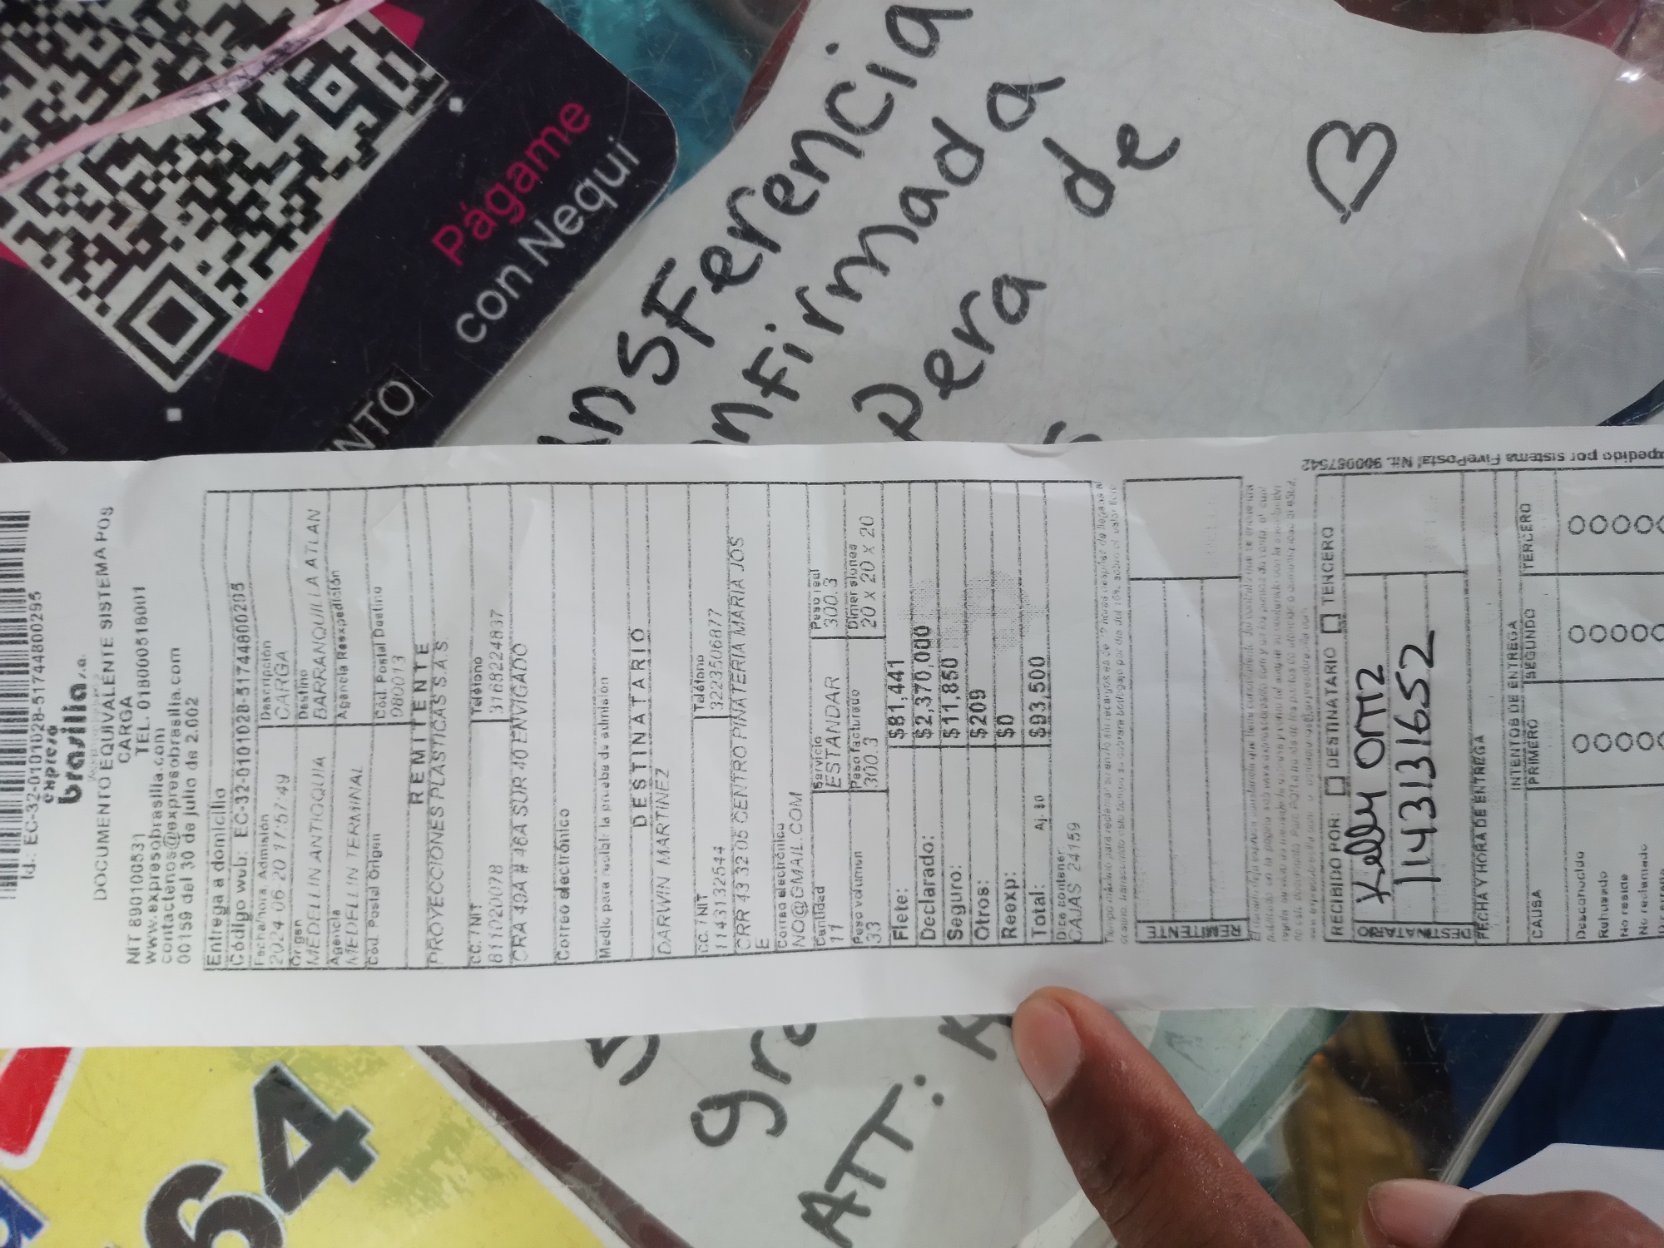 Págame
con Nequi
NTO
ansferencia
nfirmada
pera de
de
Id.: EC-32-0101028-51744800295
expreso
brasilia s.a.
DOCUMENTO EQUIVALENTE SISTEMA POS
CARGA
NIT 890100531 TEL. 018000518001
www.expresobrasilia.com
contactenos@expresobrasilia.com
00159 del 30 de julio de 2.002
Entrega a domicilio
Código wub: EC-32-0101028-51744800295
Fecha/hora Admisión Descripción
2024-06-20 17:57:49 CARGA
Origen Destino
MEDELLIN ANTIOQUIA BARRANQUILLA ATLAN
Agencia Agencia Reexpedición
MEDELLIN TERMINAL
Cód. Postal Origen Cód. Postal Destino
080013
REMITENTE
PROYECCIONES PLASTICAS S A S
CC. / NIT Teléfono
811020078 3168224837
CRA 49A # 46A SUR 40 ENVIGADO
Correo electrónico
Medio para recibir la prueba de admisión
DESTINATARIO
DARWIN MARTINEZ
CC. / NIT Teléfono
1143132544 3223506877
CRR 43 32 05 CENTRO PIÑATERIA MARIA JOS
E
Correo electrónico
NO@GMAIL.COM
Cantidad Servicio Peso real
11 ESTANDAR 300.3
Peso volumen Peso facturado Dimensiones
33 300.3 20 x 20 x 20
Flete: $81,441
Declarado: $2,370,000
Seguro: $11,850
Otros: $209
Reexp: $0
Total: Aj. $0 $93,500
Dice contener
CAJAS 24159
REMITENTE
RECIBIDO POR: DESTINATARIO TERCERO
DESTINATARIO
Kelly Ortiz
1143131652
FECHA Y HORA DE ENTREGA
INTENTOS DE ENTREGA
CAUSA PRIMERO SEGUNDO TERCERO
Desconocido
Rehusado
No reside
No reclamado
pedido por sistema FivePostal Nit. 900057542
64
gra
ATT: